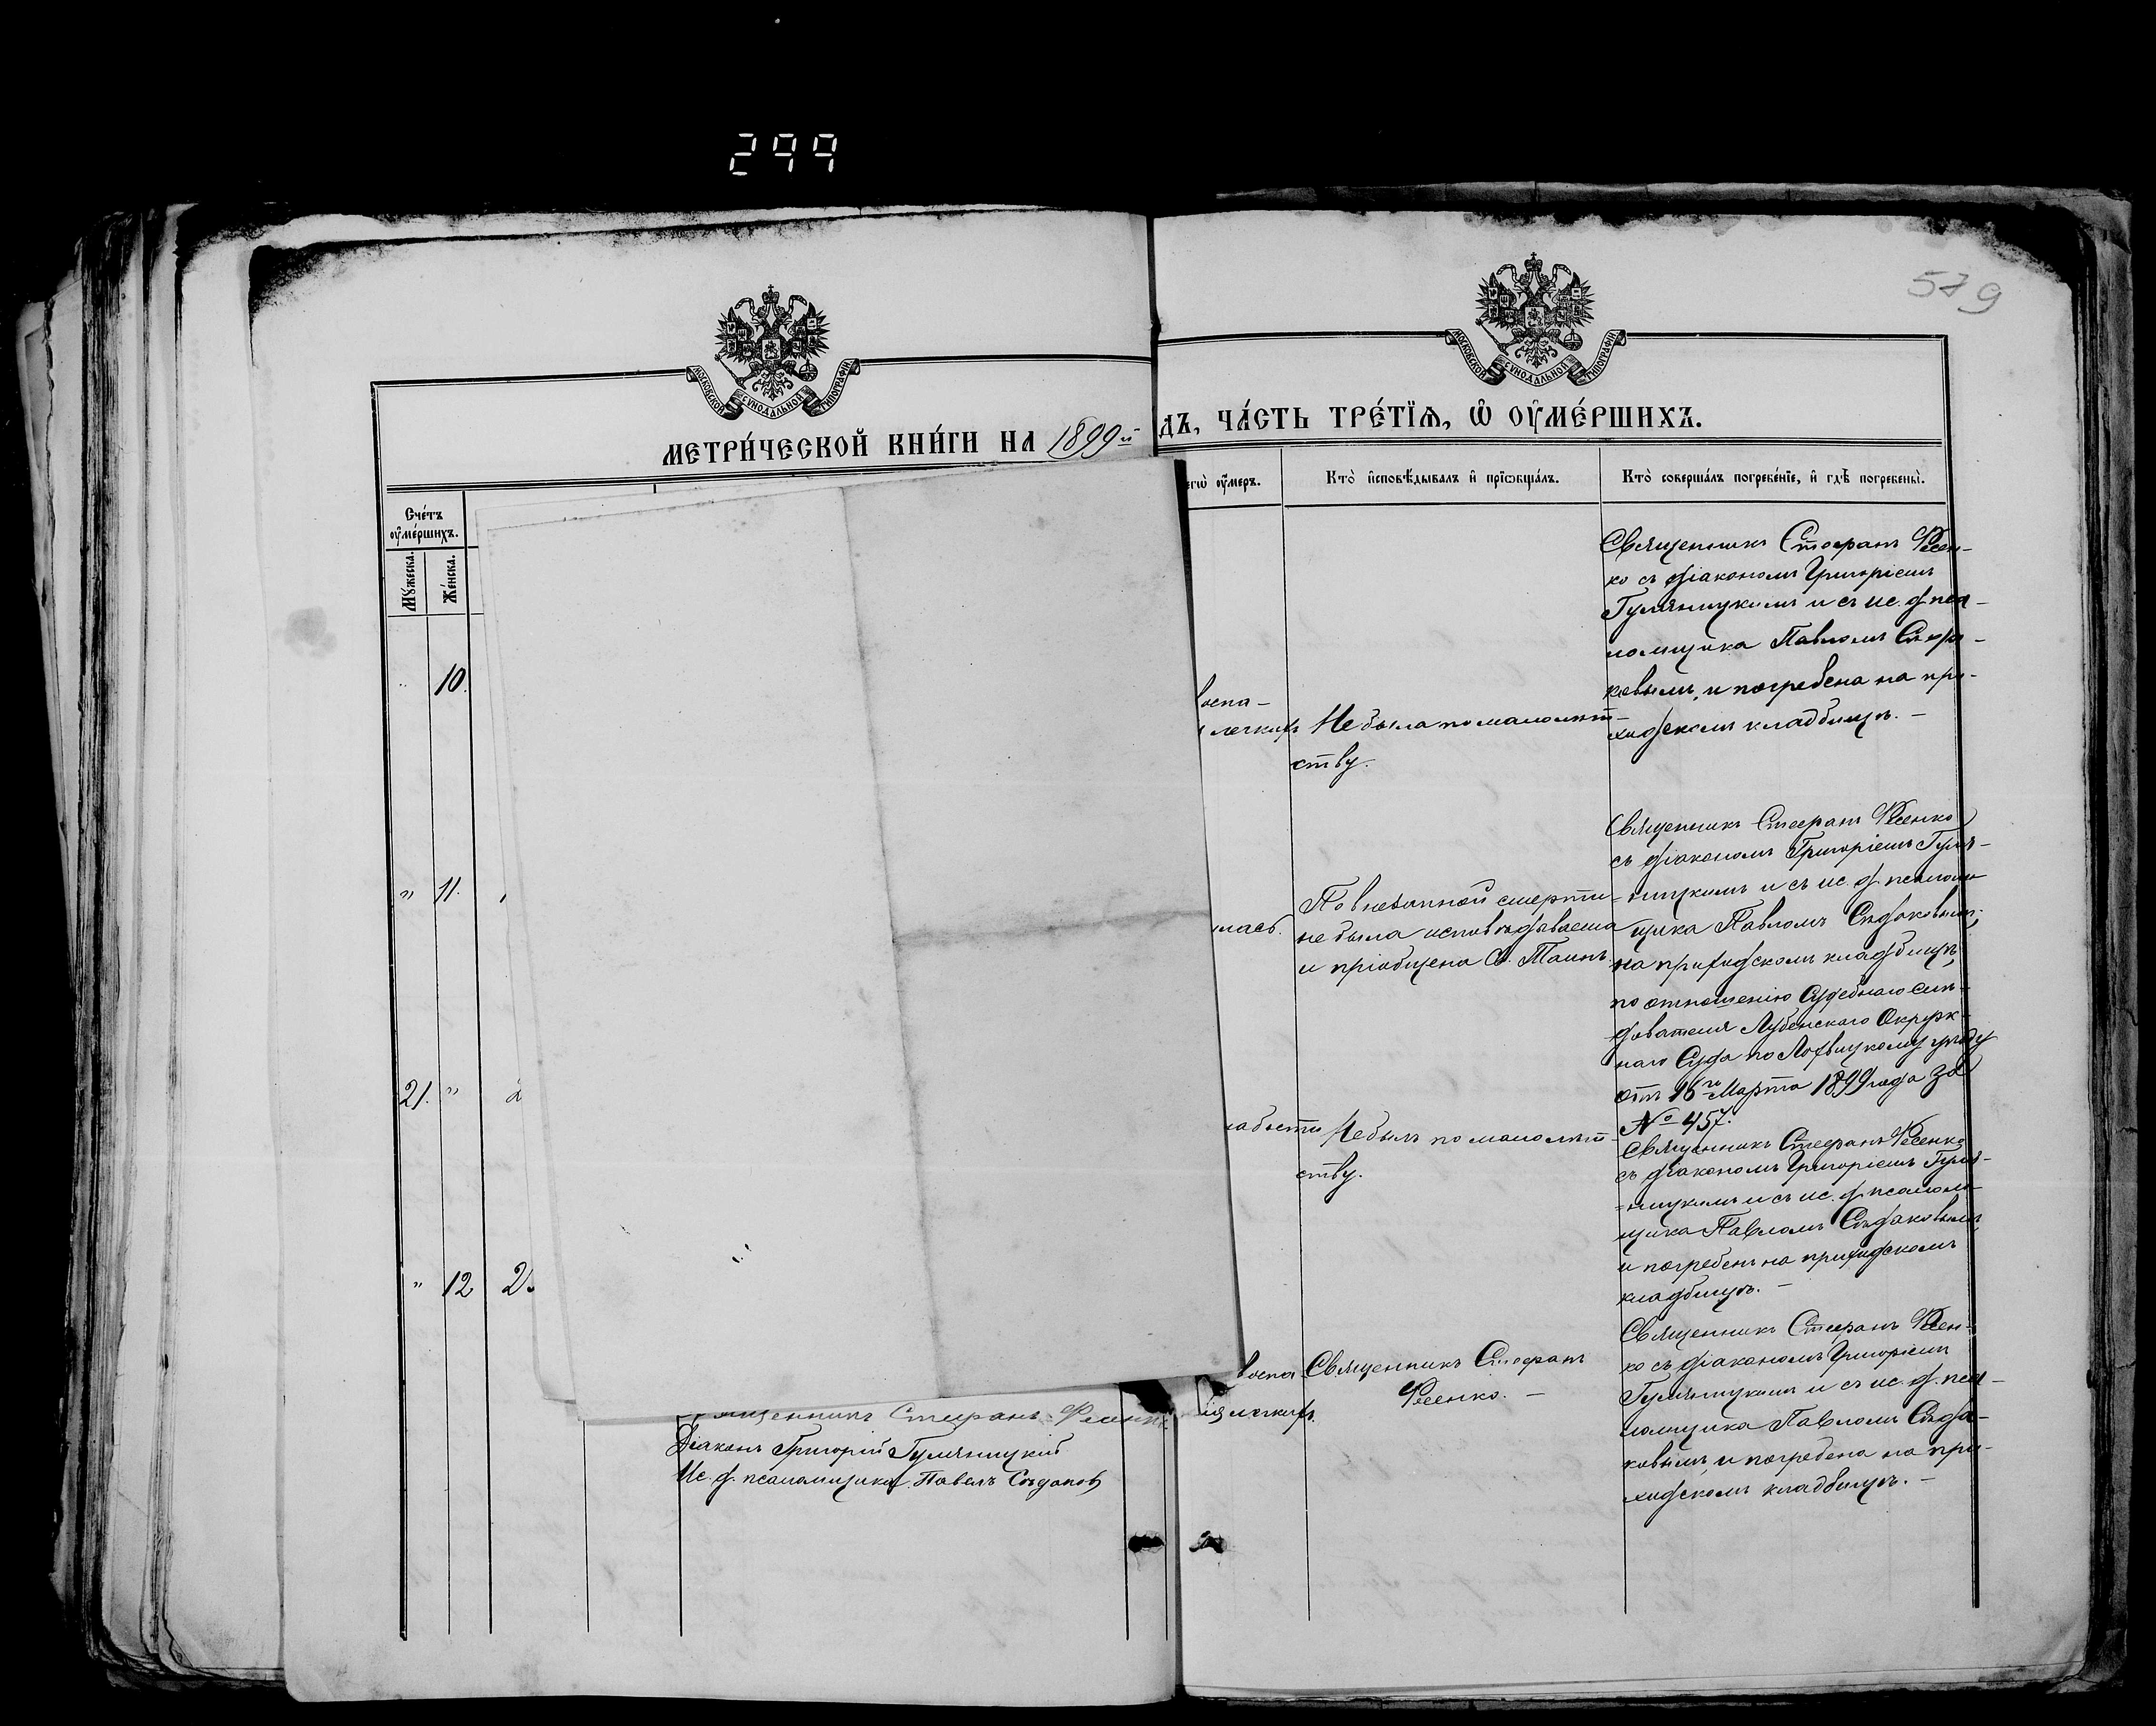 299
579
МОСКОВСКОЙ СѴНОДАЛЬНОЙ ТИПОГРАФІИ
МОСКОВСКОЙ СѴНОДАЛЬНОЙ ТИПОГРАФІИ
МЕТРИ́ЧЕСКОЙ КНИ́ГИ НА 1899й
ДЪ, ЧА́СТЬ ТРЕ́ТЇѦ, Ѡ ОУМЕ́РШИХЪ.
Сче́тъ
оумéршихъ.
Мꙋжеска.
Же́нска.
егѡ оумеръ.
Кто̀ исповѣ́дывалъ и прїѡбща́лъ.
Кто̀ соверша́лъ погребе́нїе, и гдѣ̀ погребены̀.
10.
воспа-
легкихъ
Не была по малолѣт-
ству.
Священникъ Стефанъ Фесен-
ко съ діакономъ Григоріемъ
Гуляницкимъ и съ ис. д. пса-
ломщика Павломъ Сѣда-
ковымъ, и погребена на при-
ходскомъ кладбищѣ. -
" 11.
лась.
По внезапной смерти
не была исповѣдаваема
и пріобщена Св. Таинъ.
Священникъ Стефанъ Фесенко
съ діакономъ Григоріемъ Гуля-
=ницкимъ и съ ис. д. псалом-
щика Павломъ Сѣдаковымъ;
на приходскомъ кладбищѣ,
по отношенію Судебнаго Слѣ-
дователя Лубенскаго Окруж-
наго Суда по Лохвицкому уѣзду
отъ 16го Марта 1899 года за
№ 457.
21. "
абости
Не былъ по малолѣт-
ству.
Священникъ Стефанъ Фесенко
съ діакономъ Григоріемъ Гуля-
=ницкимъ и съ ис. д. псалом-
щика Павломъ Сѣдаковымъ,
и погребенъ на приходскомъ
кладбищѣ. -
" 12 2
воспа
легкихъ.
Священникъ Стефанъ
Фесенко. -
Священникъ Стефанъ Фесен-
ко съ діакономъ Григоріемъ
Гуляницкимъ и съ ис. д. пса-
ломщика Павломъ Сѣда-
ковымъ, и погребена на при-
ходскомъ кладбищѣ. -
Священникъ Стефанъ Фесенко
Діаконъ Григорій Гуляницкій
Ис. д. псаломщика Павелъ Сѣдаковъ